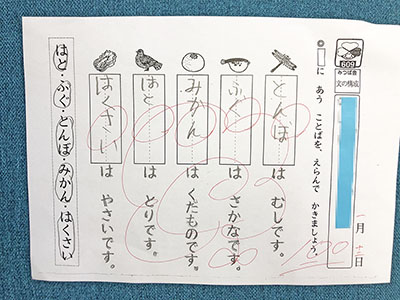 609
みつば会
文の構成
一月十二日
100
◎□に あう ことばを、えらんで かきましょう。
とんぼ は むしです。
ふぐ は さかなです。
みかん は くだものです。
はと は とりです。
はくさい は やさいです。
はと・ふぐ・とんぼ・みかん・はくさい